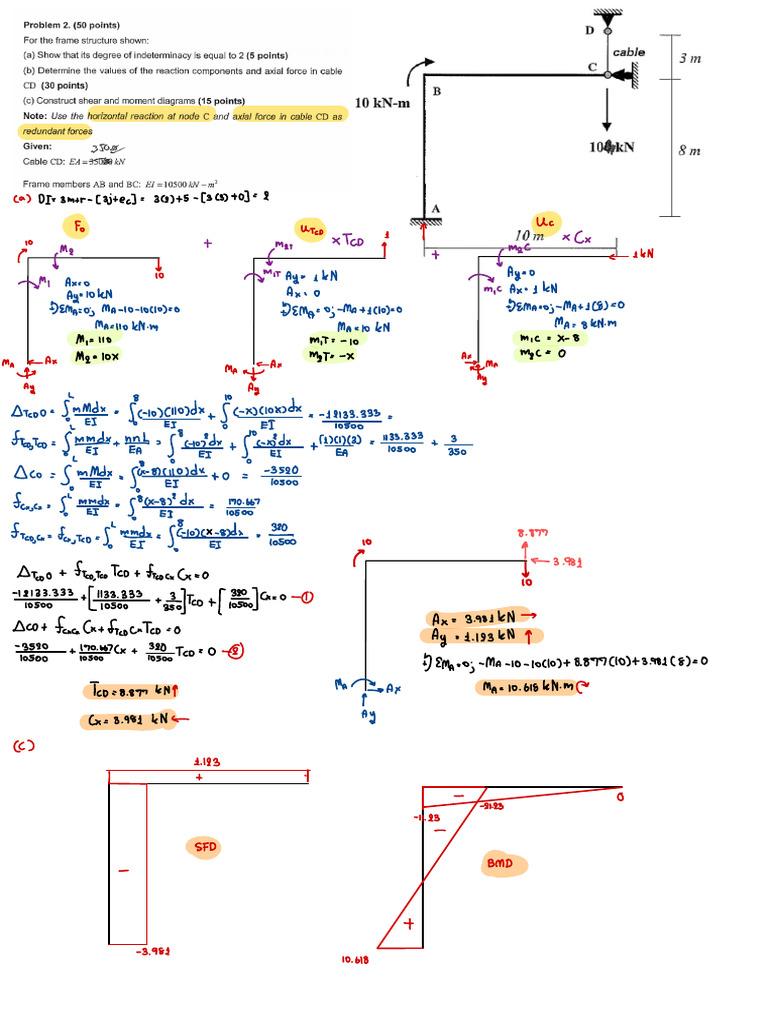 Problem 2. (50 points)
For the frame structure shown:
(a) Show that its degree of indeterminacy is equal to 2 (5 points)
(b) Determine the values of the reaction components and axial force in cable CD (30 points)
(c) Construct shear and moment diagrams (15 points)
Note: Use the horizontal reaction at node C and axial force in cable CD as redundant forces
Given:
3500
Cable CD: EA = kN
Frame members AB and BC: EI = 10500 kN − m²
D
cable
3 m
C
B
10 kN-m
kN
8 m
A
10 m
(a) DI = 3m+r - [3j+ec] = 3(3)+5 - [3(3)+0] = 2
F₀
+
u_TCD × T_CD
+
u_C × Cx
10
M₂
M₁
10
Ax=0
Ay=10kN
↻ΣMA=0; MA-10-10(10)=0
MA=110 kN·m
M₁ = 110
M₂ = 10X
MA
Ax
Ay
M₂T
m₁T
1
Ay = 1 kN
Ax = 0
↻ΣMA=0; -MA+1(10)=0
MA=10 kN
m₁T = -10
m₂T = -X
MA
Ax
Ay
m₂C
1kN
m₁C
Ay=0
Ax = 1 kN
↻ΣMA=0; -MA+1(8)=0
MA = 8 kN·m
m₁C = X-8
m₂C = 0
Ax
MA
Ay
Δ_TCD0 = ∫₀ᴸ mMdx/EI = ∫₀⁸ (-10)(110)dx/EI + ∫₀¹⁰ (-x)(10x)dx/EI = -12133.333/10500 =
f_TCD,TCD = ∫₀ᴸ mmdx/EI + nnL/EA = ∫₀⁸ (-10)²dx/EI + ∫₀¹⁰ (-x)²dx/EI + (1)(1)(3)/EA = 1133.333/10500 + 3/350
ΔC0 = ∫₀ᴸ mMdx/EI = ∫₀⁸ (x-8)(110)dx/EI + 0 = -3520/10500
f_Cx,Cx = ∫₀ᴸ mmdx/EI = ∫₀⁸ (x-8)²dx/EI = 170.667/10500
f_TCD,Cx = f_Cx,TCD = ∫₀ᴸ mmdx/EI = ∫₀⁸ (-10)(x-8)dx/EI = 320/10500
Δ_TCD0 + f_TCD,TCD TCD + f_TCDCx Cx = 0
-12133.333/10500 + [1133.333/10500 + 3/350] TCD + [320/10500] Cx = 0 — ①
ΔC0 + f_CxCx Cx + f_TCDCx TCD = 0
-3520/10500 + 170.667/10500 Cx + 320/10500 TCD = 0 — ②
TCD = 8.877 kN ↑
Cx = 3.981 kN ←
10
8.877
3.981
10
Ax = 3.981 kN →
Ay = 1.123 kN ↑
↻ΣMA=0; -MA-10-10(10)+8.877(10)+3.981(8)=0
MA = 10.618 kN·m
MA
Ax
Ay
(C)
1.123
+
SFD
−
-3.981
−
0
-11.23
-21.23
−
BMD
+
10.618